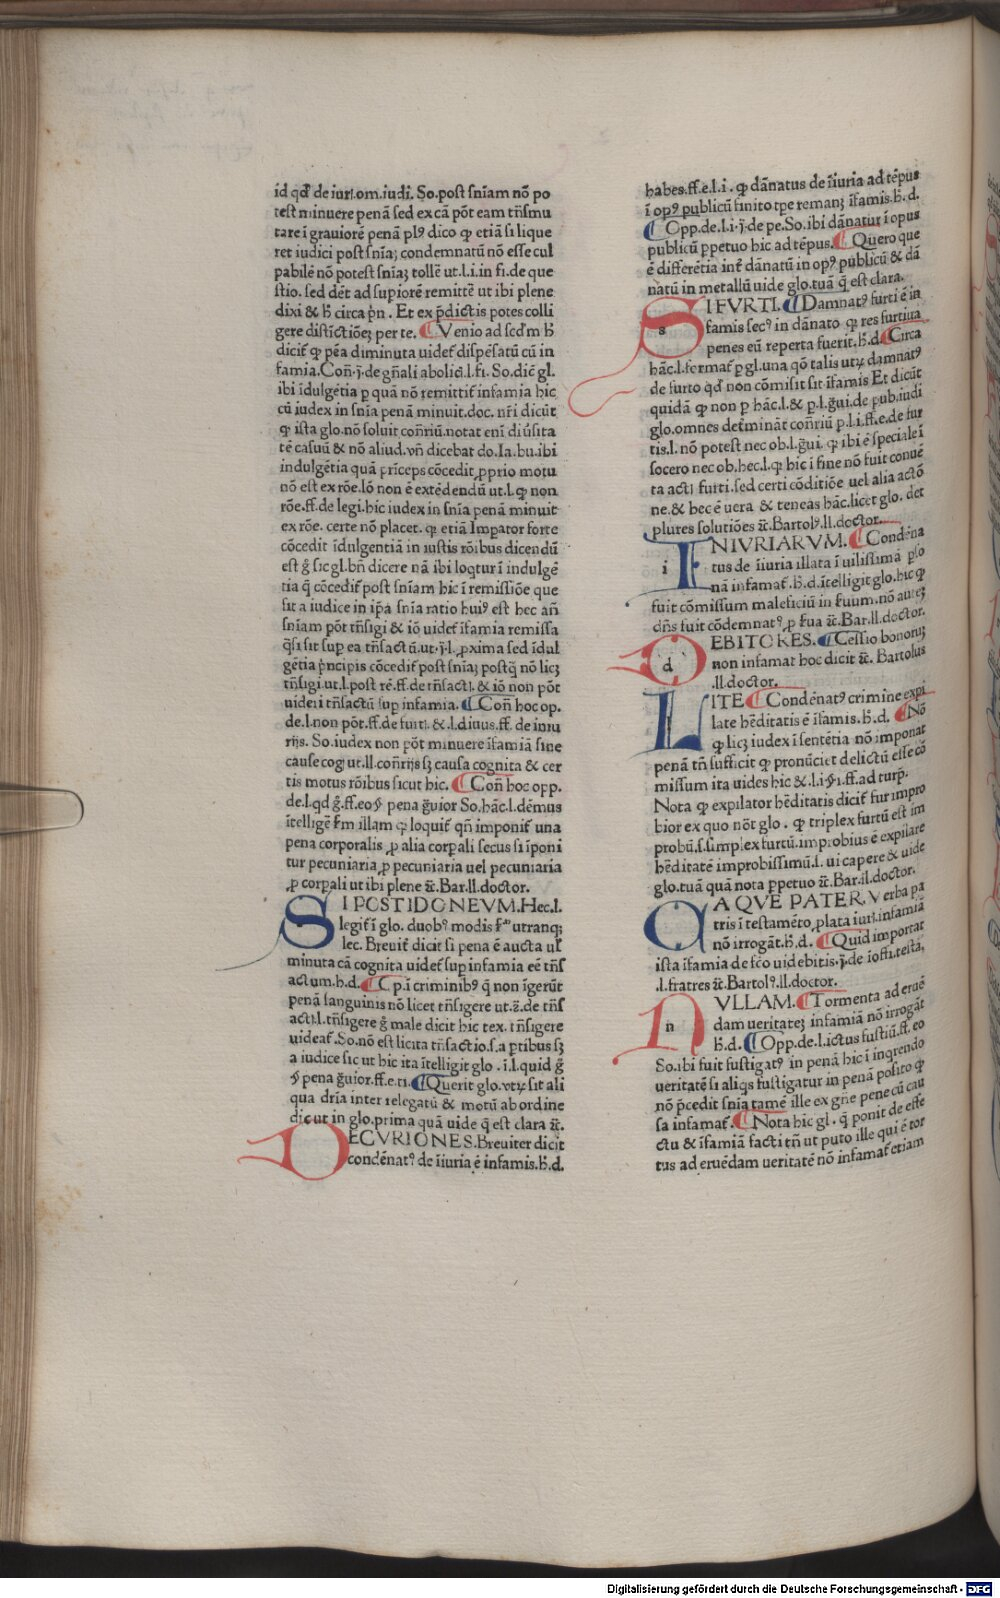 id qđ de iurı.om.iudi. So.post sńiam nō po
test minuere penā sed ex cā pōt eam trńsmu
tare ī grauiorē penā plꝰ dico ꝙ etiā si lique
ret iudici post sńiaꝫ condemnatū nō esse cul
pabilē nō potest sńiaꝫ tollē ut.l.i.in fi.de que
stio. sed dēt ad supiorē remittē ut ibi plene
dixi & ħ circa pń. Et ex pdictis potes colli
gere distīctiōeꝫ per te. ¶ Venio ad scđm ħ
dicit ꝙ pēa diminuta uidet dispēsatū cū in
famia. Coñ.j.de gńali abolici.l.fi. So.diē gl.
ibi īdulgētia p quā nō remittit infamia hic
cū iudex in sńia penā minuit.doc. nŕi dicūt
ꝙ ista glo.nō soluit coñriū.notat eni diuſita
tē casuū & nō aliud.vñ dicebat do.Ia.bu.ibi
indulgētia quā prīceps cōcedit pprio motu
nō est ex rōe.Iō non ē extēdendū ut.l.ꝙ non
rōe.ff.de legi.hic iudex in sńia penā minuit
ex rōe. certe nō placet. ꝙ etiā Impator forte
cōcedit īdulgentiā in iustis rōibus dicendū
est ġ sic gl.bń dicere nā ibi loqtur ī indulgē
tia q̄ cōcedit post sńiam hic ī remissiōe que
fit a iudice in ip̄a sńia ratio huiꝰ est hec añ
sńiam pōt trńsigi & iō uidet īfamia remissa
q̄si sit sup ea trńsactū.ut.j.l.pxima sed īdul
gētia pńcipis cōcedit post sńiaꝫ postq̄ nō licꝫ
trńsigi.ut.l.post rē.ff.de trńsactı.& iō non pōt
uideri trńsactū sup infamia. ¶ Coñ hoc op.
de.l.non pōt.ff.de furtı.& .l.diuus.ff. de iniu
rijs. So.iudex non pōt minuere īfamiā sine
cause cog ut.ll.coñrijs sꝫ causa cognita & cer
tis motus rōibus sicut hic. ¶ Coñ hoc opp.
de.l.qđ ġ.ff.eo.§ pena ḡuior So.hāc.l.dēmus
ītelligē fm illam ꝙ loquit qñ imponit una
pena corporalis p alia corpali secus si īponi
tur pecuniaria p pecuniaria uel pecuniaria
p corpali ut ibi plene &c̄. Bar.ll.doctor.
SI POST IDONEVM. Hec.l.
legit ī glo. duobꝰ modis fm utranqꝫ
lec. Breuit dicit si pena ē aucta ul
minuta cā cognita uidet sup infamia eē trńs
actum.h.d. ¶ C p.i criminibꝰ q̄ non īgerūt
penā sanguinis nō licet trńsigere ut.ꝫ.de trńs
actı.l.trńsigere ġ male dicit hic tex. trńsigere
uideat. So.nō est licita trńsactio.s.a ptibus sꝫ
a iudice sic ut hic ita ītelligit glo .i.l.quid ġ
§ pena ḡuior.ff.e.ti. ¶ Querit glo.vtꝝ sit ali
qua dŕia inter relegatū & motū ab ordine
dic ut in glo.prima quā uide q̄ est clara &c̄.
DECVRIONES. Breuiter dicit
condēnatꝰ de īiuria ē infamis.ħ.d.
habes.ff.e.l.i. ꝙ dānatus de īiuria ad tēpus
ī opꝰ publicū finito tpe remanꝫ īfamis.ħ.d.
¶ Opp.de.l.i.j.de pe.So.ibi dānatur ī opus
publicū ppetuo hic ad tēpus. ¶ Quero que
ē differētia int dānatū in opꝰ publicū & dā
natū in metallū uide glo.tuā q̄ est clara.
SI FVRTI. ¶ Damnatꝰ furti ē in
s famis secꝰ in dānato ꝙ res furtiua
penes eū reperta fuerit.ħ.d. ¶ Circa
hāc.l.format p gl.una qō talis utꝝ damnatꝰ
de furto qđ non cōmisit sit īfamis Et dicūt
quidā ꝙ non p hāc.l.& p.l.ḡui.de pub.iudi
glo.omnes detmināt coñriū p.l.i.ff.e.de fur
tis.l.nō potest nec ob.l.ḡui. ꝙ ibi ē speciale ī
socero nec ob.hec.l.ꝙ hic ī fine nō fuit conuē
ta actı furti.sed certi cōditiōe uel alia actō
ne.& hec ē uera & teneas hāc.licet glo. det
plures solutiōes &c̄. Bartolꝰ.ll.doctor.
INIVRIARVM. ¶ Condēna
i tus de īiuria illata ī uilissimā pso
nā infamat.ħ.d.ītelligit glo.hic ꝙ
fuit cōmissum maleficiū in fuum.nō auteꝫ
dńs fuit cōdemnatꝰ p fua &c̄. Bar.ll.doctor.
DEBITORES. ¶ Cessio bonoruꝫ
d non infamat hoc dicit &c̄. Bartolus
.ll.doctor.
LITE ¶ Condēnatꝰ crimine expi
late hēditatis ē īfamis.ħ.d. ¶ Nō
ꝙ licꝫ iudex ī sentētia nō imponat
penā tñ sufficit ꝙ pronūciet delictū esse cō
missum ita uides hic & .l.i.§.i.ff.ad turp.
Nota ꝙ expilator hēditatis dicit fur impro
bior ex quo nōt glo . ꝙ triplex furtū est im
probū.s.simplex furtū.improbius ē expilare
hēditatē improbissimū.s. ui capere & uide
glo.tuā quā nota ppetuo &c̄.Bar.ll.doctor.
QA QVE PATER. Verba pa
tris ī testamēto plata iurı.infamiā
nō irrogāt.ħ.d. ¶ Quid importat
ista īfamia de fco uidebitis.j.de īoffi.testa.
.l.fratres &c̄. Bartolꝰ.ll.doctor.
NVLLAM. ¶ Tormenta ad eruē
n dam ueritateꝫ infamiā nō irrogāt
ħ.d. ¶ Opp.de.l.ictus fustiū.ff. eo
So.ibi fuit fustigatꝰ in penā hic ī inqrendo
ueritatē si aliqs fustigatur in penā posito ꝙ
nō pcedit sńia tamē ille ex gńe pene cū cau
sa infamat. ¶ Nota hic gl . ꝙ ponit de esse
ctu & īfamiā facti tñ ut puto ille qui ē tor
tus ad eruēdam ueritatē nō infamat etiam
Digitalisierung gefördert durch die Deutsche Forschungsgemeinschaft - DFG